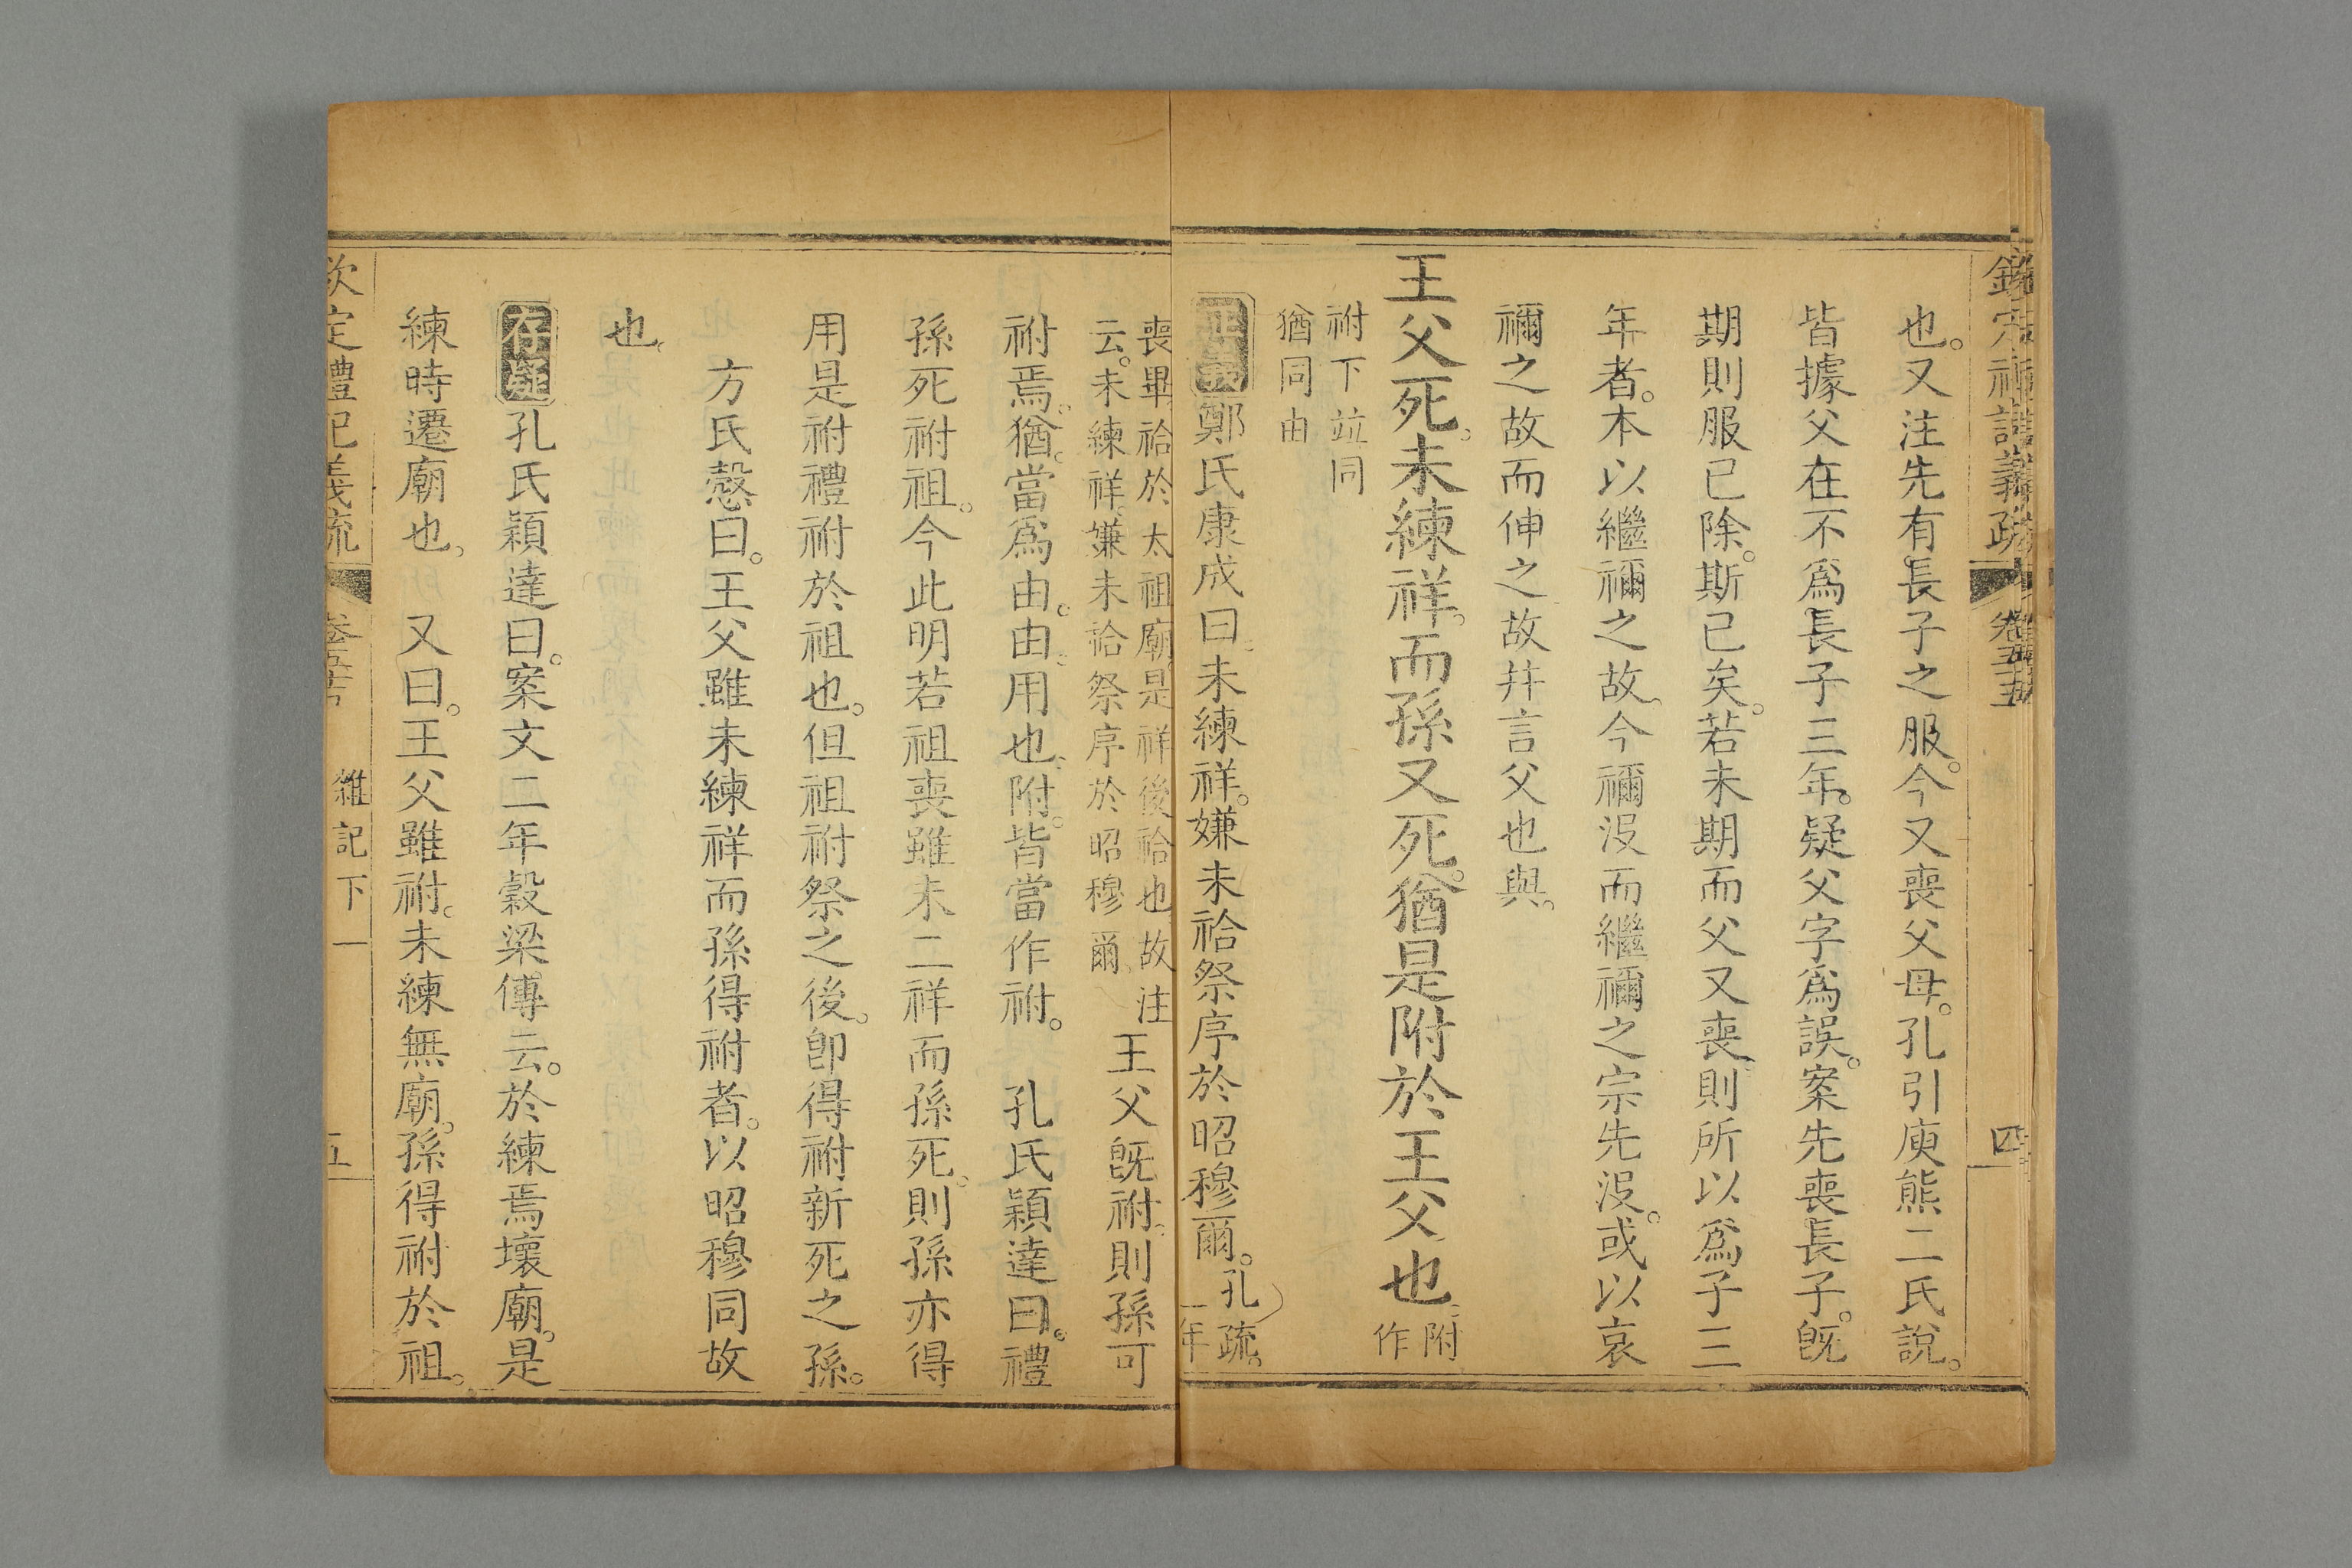 欽定禮記義疏 卷五十五 四
也。又注先有長子之服。今又喪父母。孔引庾熊二氏說。
皆據父在不爲長子三年。疑父字爲誤。案先喪長子。旣
期則服已除。斯已矣。若未期而父又喪。則所以爲子三
年者。本以繼禰之故。今禰沒而繼禰之宗先沒。或以哀
禰之故而伸之故幷言父也與。
王父死。未練祥。而孫又死。猶是附於王父也。附作
祔下竝同
猶同由
正義鄭氏康成曰。未練祥。嫌未祫祭序於昭穆爾。孔疏。二年
喪畢。祫於太祖廟。是祥後祫也。故注
云。未練祥。嫌未祫祭序於昭穆爾。
王父旣祔。則孫可
祔焉。猶。當爲由。由。用也。附。皆當作祔。 孔氏穎達曰。禮
孫死祔祖。今此明若祖喪雖未二祥而孫死。則孫亦得
用是祔禮祔於祖也。但祖祔祭之後。卽得祔新死之孫。
方氏慤曰。王父雖未練祥而孫得祔者。以昭穆同故
也。
存疑孔氏穎達曰。案文二年穀梁傳云。於練焉壞廟。是
練時遷廟也。 又曰。王父雖祔。未練無廟。孫得祔於祖。
欽定禮記義疏 卷五十五 雜記下一 五